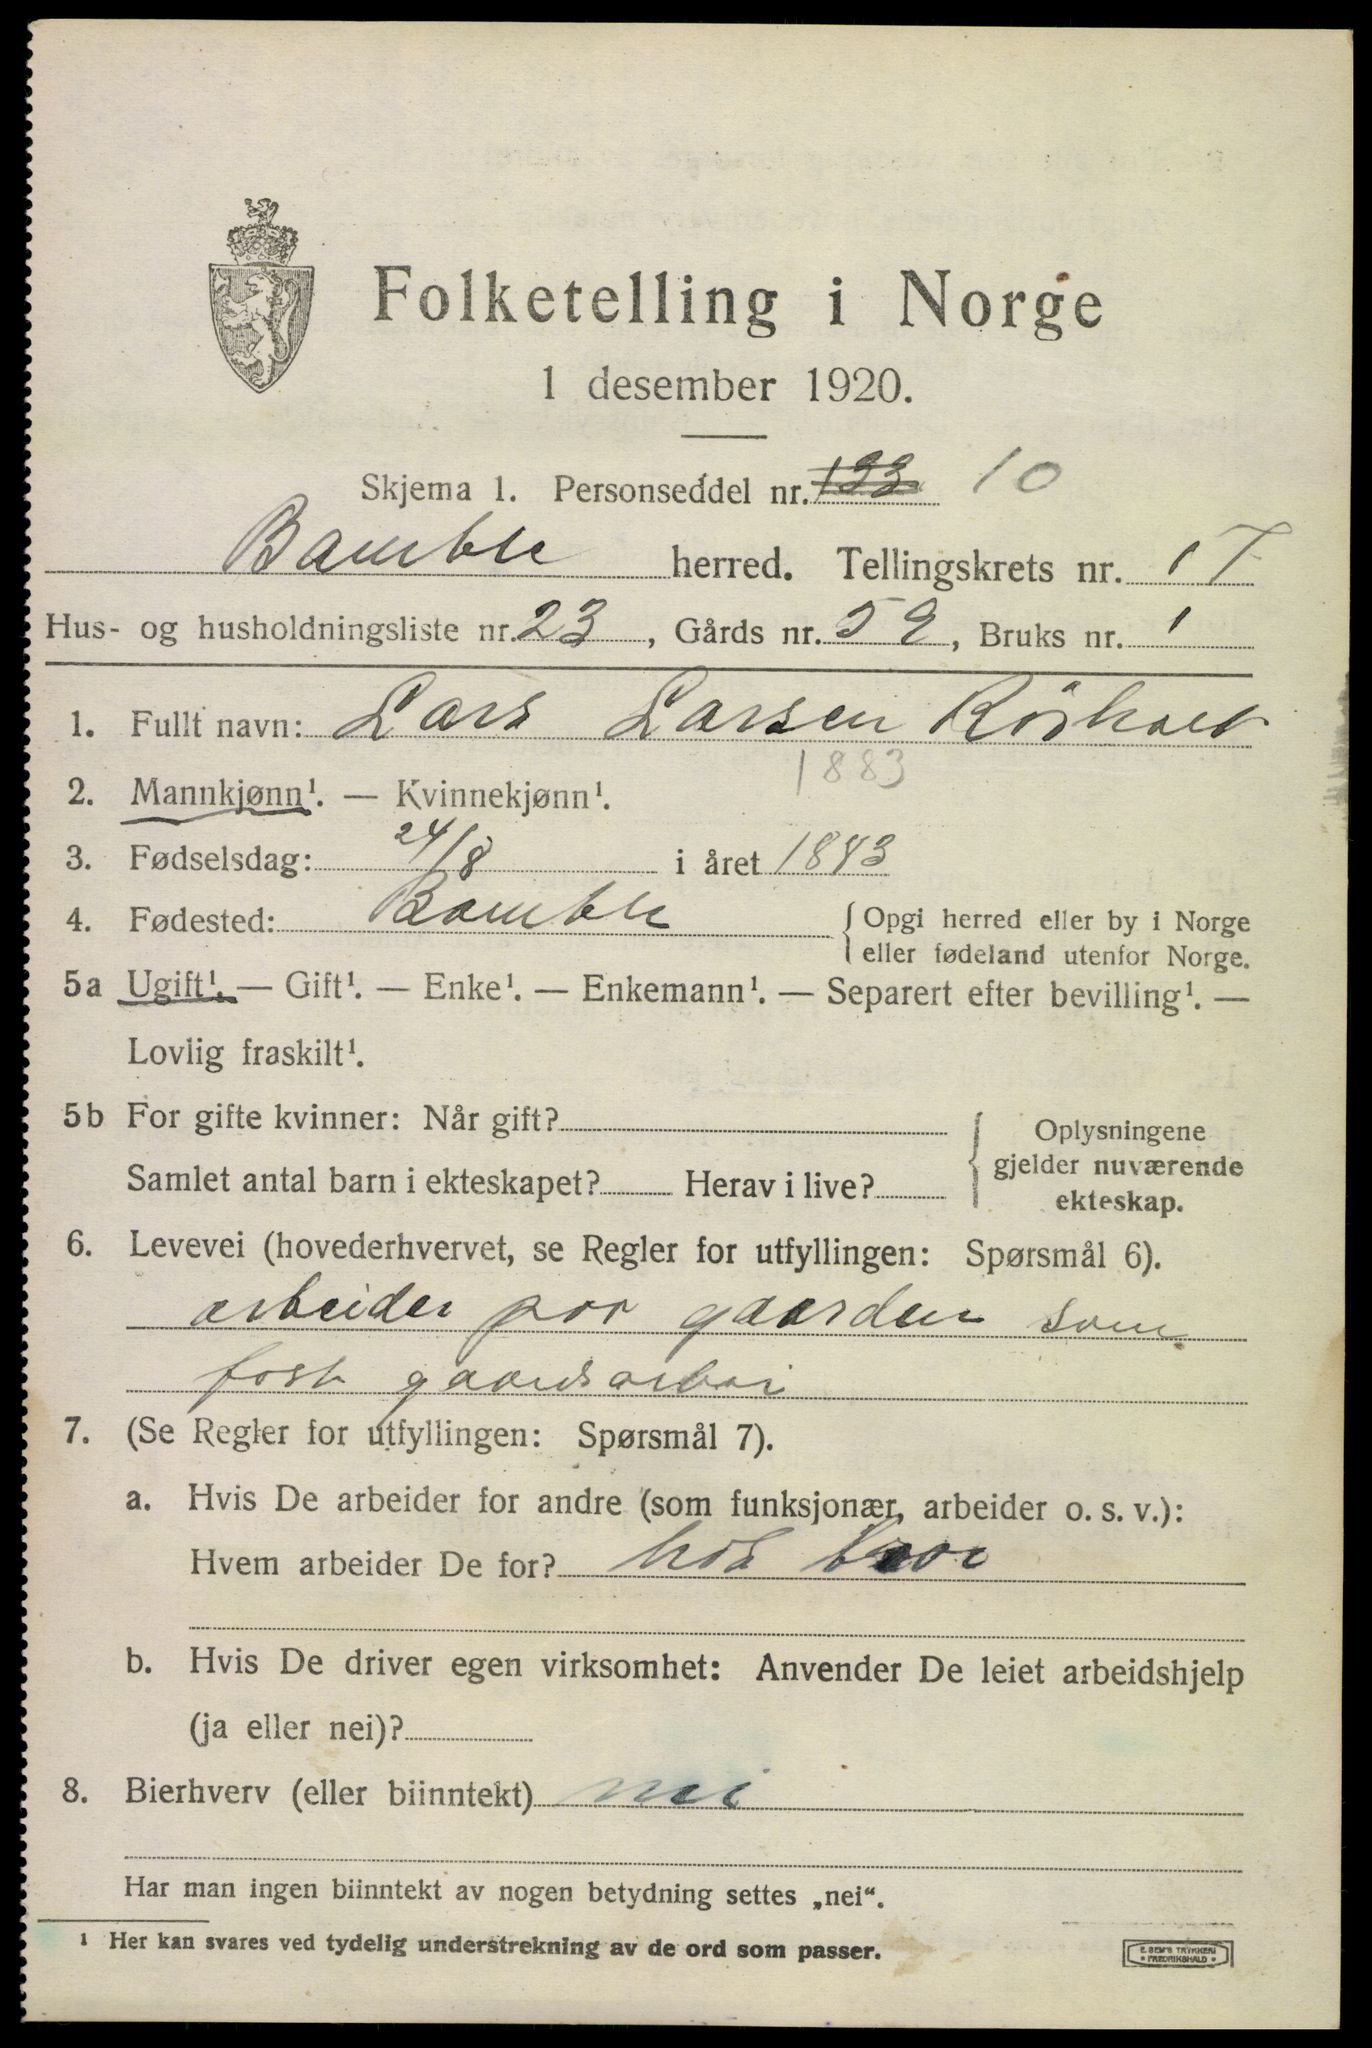 Folketelling i Norge
1 desember 1920.
Skjema 1. Personseddel nr. 133 10
Bamble herred. Tellingskrets nr. 17
Hus- og husholdningsliste nr. 23, Gårds nr. 59, Bruks nr. 1
1. Fullt navn: Lars Larsen Rösholt
1883
2. Mannkjønn¹. — Kvinnekjønn¹.
3. Fødselsdag: 24/8 i året 1883
4. Fødested: Bamble { Opgi herred eller by i Norge
eller fødeland utenfor Norge.
5a Ugift¹. — Gift¹. — Enke¹. — Enkemann¹. — Separert efter bevilling¹. —
Lovlig fraskilt¹.
5b For gifte kvinner: Når gift?
Samlet antal barn i ekteskapet? Herav i live?
{ Oplysningene
gjelder nuværende
ekteskap.
6. Levevei (hovederhvervet, se Regler for utfyllingen: Spørsmål 6).
arbeider paa gaarden som
fast gaardsarbei
7. (Se Regler for utfyllingen: Spørsmål 7).
a. Hvis De arbeider for andre (som funksjonær, arbeider o. s. v.):
Hvem arbeider De for? hos
b. Hvis De driver egen virksomhet: Anvender De leiet arbeidshjelp
(ja eller nei)?
8. Bierhverv (eller biinntekt) nei
Har man ingen biinntekt av nogen betydning settes „nei“.
¹ Her kan svares ved tydelig understrekning av de ord som passer.
E. SEM'S TRYKKERI
* FREDRIKSHALD *